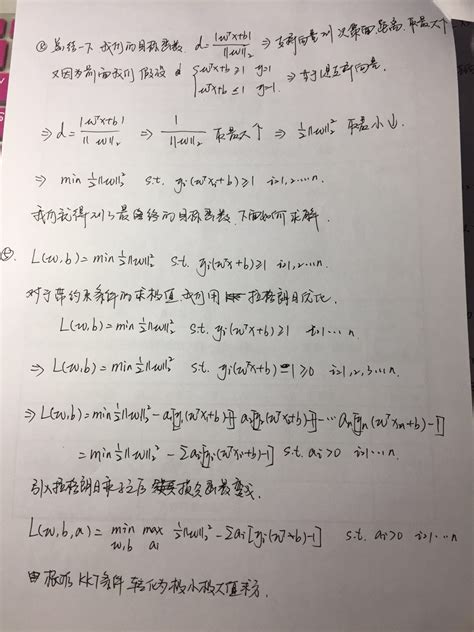 ④ 总结一下 我们的目标函数. d = |wᵀx+b| / ||w||₂ ⇒ 支持向量到决策面距离 取最大个
又因为前面我们假设 d { wᵀx+b ≥ 1 y=1 wᵀx+b ≤ 1 y=-1. ⇒ 支持向量.
⇒ d = |wᵀx+b| / ||w||₂ ⇒ 1 / ||w||₂ 取最大↑ ⇒ ½||w||₂² 取最小↓.
⇒ min ½||w||₂² s.t. yi(wᵀxi+b) ≥ 1 i=1,2,...n.
我们就得到了最终的目标函数,下面如何求解.
⑤. L(w,b) = min ½||w||₂² s.t. yi(wᵀx+b) ≥ 1 i=1,2,...n.
对于带约束条件的求极值,我们用 拉格朗日优化.
L(w,b) = min ½||w||₂² s.t. yi(wᵀx+b) ≥ 1 i=1...n.
⇒ L(w,b) = min ½||w||₂² s.t. yi(wᵀx+b) - 1 ≥ 0 i=1,2,3,...n.
⇒ L(w,b) = min ½||w||₂² - a₁[y₁(wᵀx₁+b)-1] - a₂[y₂(wᵀx₂+b)-1] - ... an[yn(wᵀxn+b)-1]
= min ½||w||₂² - Σai[yi(wᵀxi+b)-1] s.t. ai>0 i=1...n.
引入拉格朗日乘子之后 损失函数变成.
L(w,b,a) = min w,b max ai ½||w||₂² - Σai[yi(wᵀx+b)-1] s.t. ai>0 i=1...n
由 KKT条件 转化为极小极大值求言.